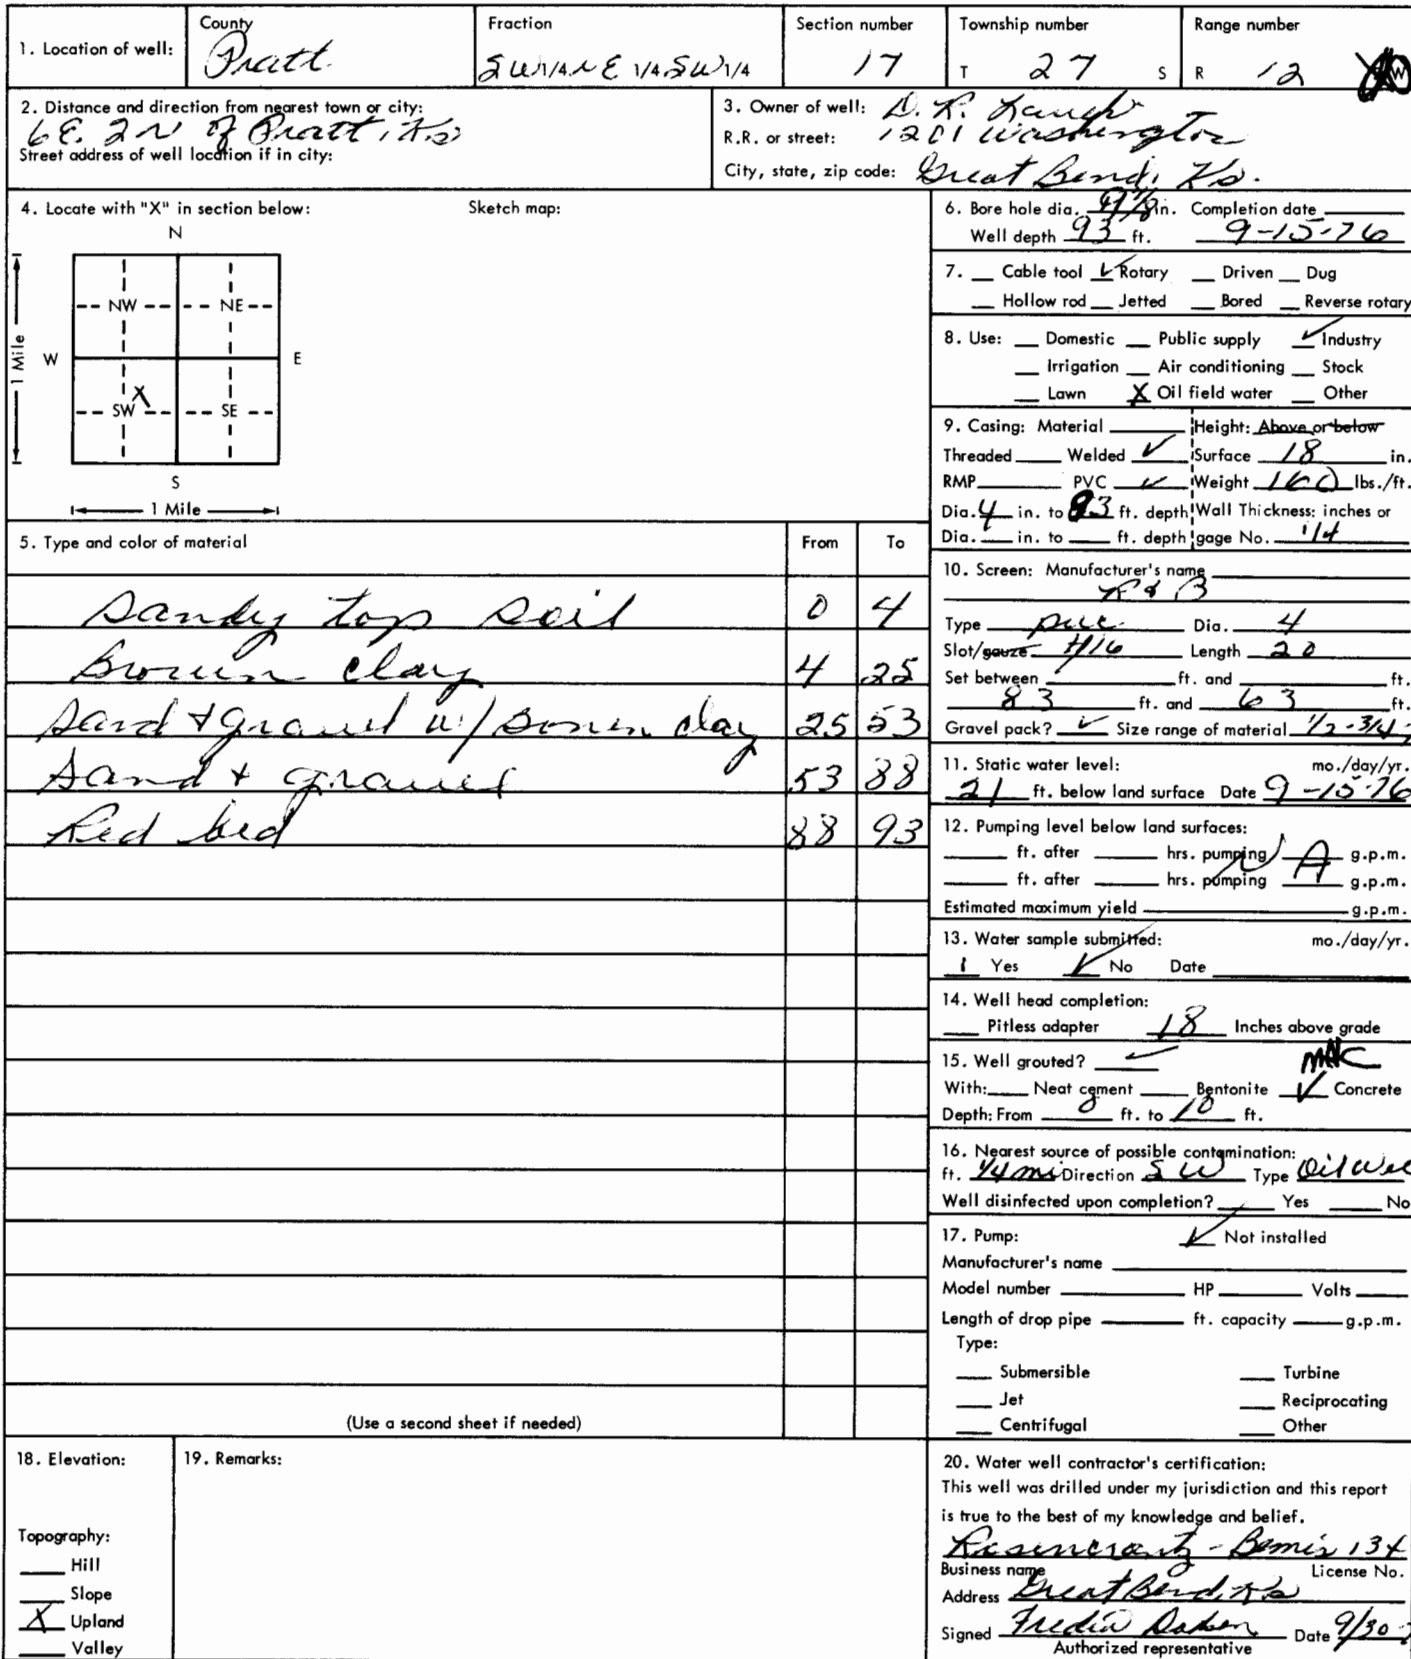 1. Location of well:
County
Pratt
Fraction
SW 1/4 NE 1/4 SW 1/4
Section number
17
Township number
T 27 S
Range number
R 12 W
2. Distance and direction from nearest town or city:
6E. 2N of Pratt, Ks
Street address of well location if in city:
3. Owner of well: D. R.
R.R. or street: 1201 Washington
City, state, zip code: Great Bend, Ks.
4. Locate with "X" in section below:
Sketch map:
N
NW NE
W E
1 Mile
X
SW SE
S
1 Mile
5. Type and color of material From To
Sandy top soil 0 4
Brown clay 4 25
Sand & gravel w/ brown clay 25 53
Sand & gravel 53 88
Red bed 88 93
(Use a second sheet if needed)
6. Bore hole dia. in. Completion date
Well depth 93 ft. 9-15-76
7. Cable tool ✓ Rotary Driven Dug
Hollow rod Jetted Bored Reverse rotary
8. Use: Domestic Public supply ✓ Industry
Irrigation Air conditioning Stock
Lawn X Oil field water Other
9. Casing: Material Height: Above or below
Threaded Welded ✓ Surface 18 in.
RMP PVC ✓ Weight 160 lbs./ft.
Dia. 4 in. to 83 ft. depth Wall Thickness: inches or
Dia. in. to ft. depth gage No. 1/4
10. Screen: Manufacturer's name
R & B
Type pvc Dia. 4
Slot/gauze #16 Length 20
Set between ft. and ft.
83 ft. and 63 ft.
Gravel pack? ✓ Size range of material 1/2-3/4
11. Static water level: mo./day/yr.
21 ft. below land surface Date 9-15-76
12. Pumping level below land surfaces:
ft. after hrs. pumping NA g.p.m.
ft. after hrs. pumping g.p.m.
Estimated maximum yield g.p.m.
13. Water sample submitted: mo./day/yr.
Yes ✓ No Date
14. Well head completion:
Pitless adapter 18 Inches above grade
15. Well grouted? ✓
With: Neat cement Bentonite ✓ Concrete
Depth: From 0 ft. to 10 ft.
16. Nearest source of possible contamination:
ft. 1/4 mi Direction SW Type Oil Wel
Well disinfected upon completion? Yes No
17. Pump: ✓ Not installed
Manufacturer's name
Model number HP Volts
Length of drop pipe ft. capacity g.p.m.
Type:
Submersible Turbine
Jet Reciprocating
Centrifugal Other
18. Elevation:
Topography:
Hill
Slope
X Upland
Valley
19. Remarks:
20. Water well contractor's certification:
This well was drilled under my jurisdiction and this report
is true to the best of my knowledge and belief.
Rosencrantz - Bemis 134
Business name License No.
Address Great Bend, Ks
Signed Date 9/30
Authorized representative